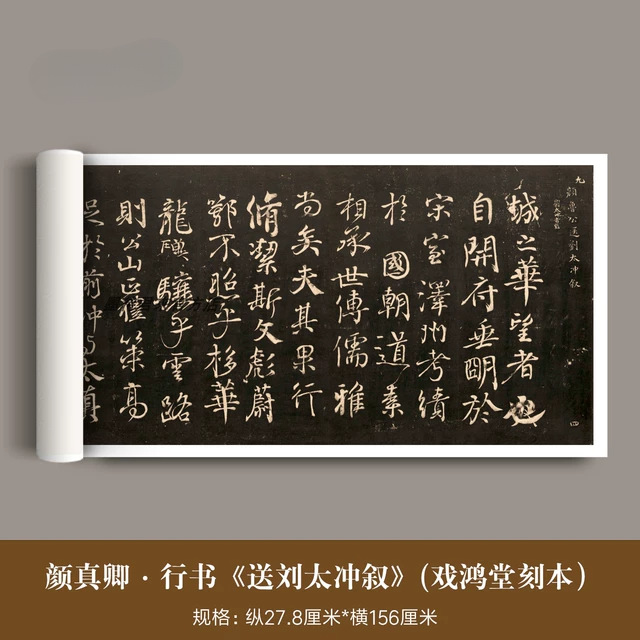 九
顏魯公送劉太冲叙
四
城之華望者也
自開府垂明於
宋室澤州考績
於國朝道素
相承世傳儒雅
尚矣夫其果行
脩潔斯文彪蔚
鄂不照乎栘華
龍驥驤乎雲路
則公山正禮策高
足於前冲与太真
颜真卿·行书《送刘太冲叙》(戏鸿堂刻本)
规格:纵27.8厘米*横156厘米